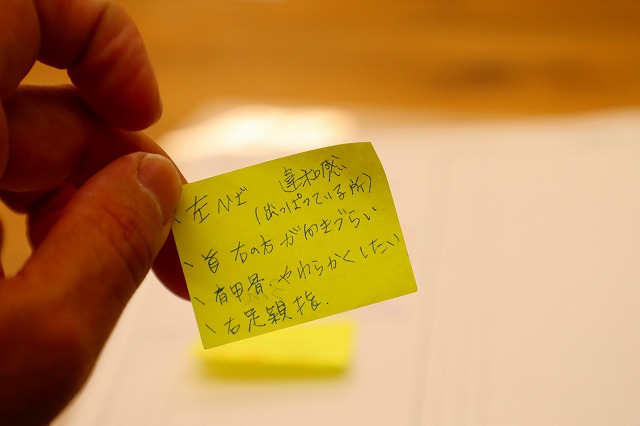 、左ひざ 違和感
(出っぱっている所)
、首 右の方が向きづらい
、肩甲骨.やわらかくしたい
、右足親指.